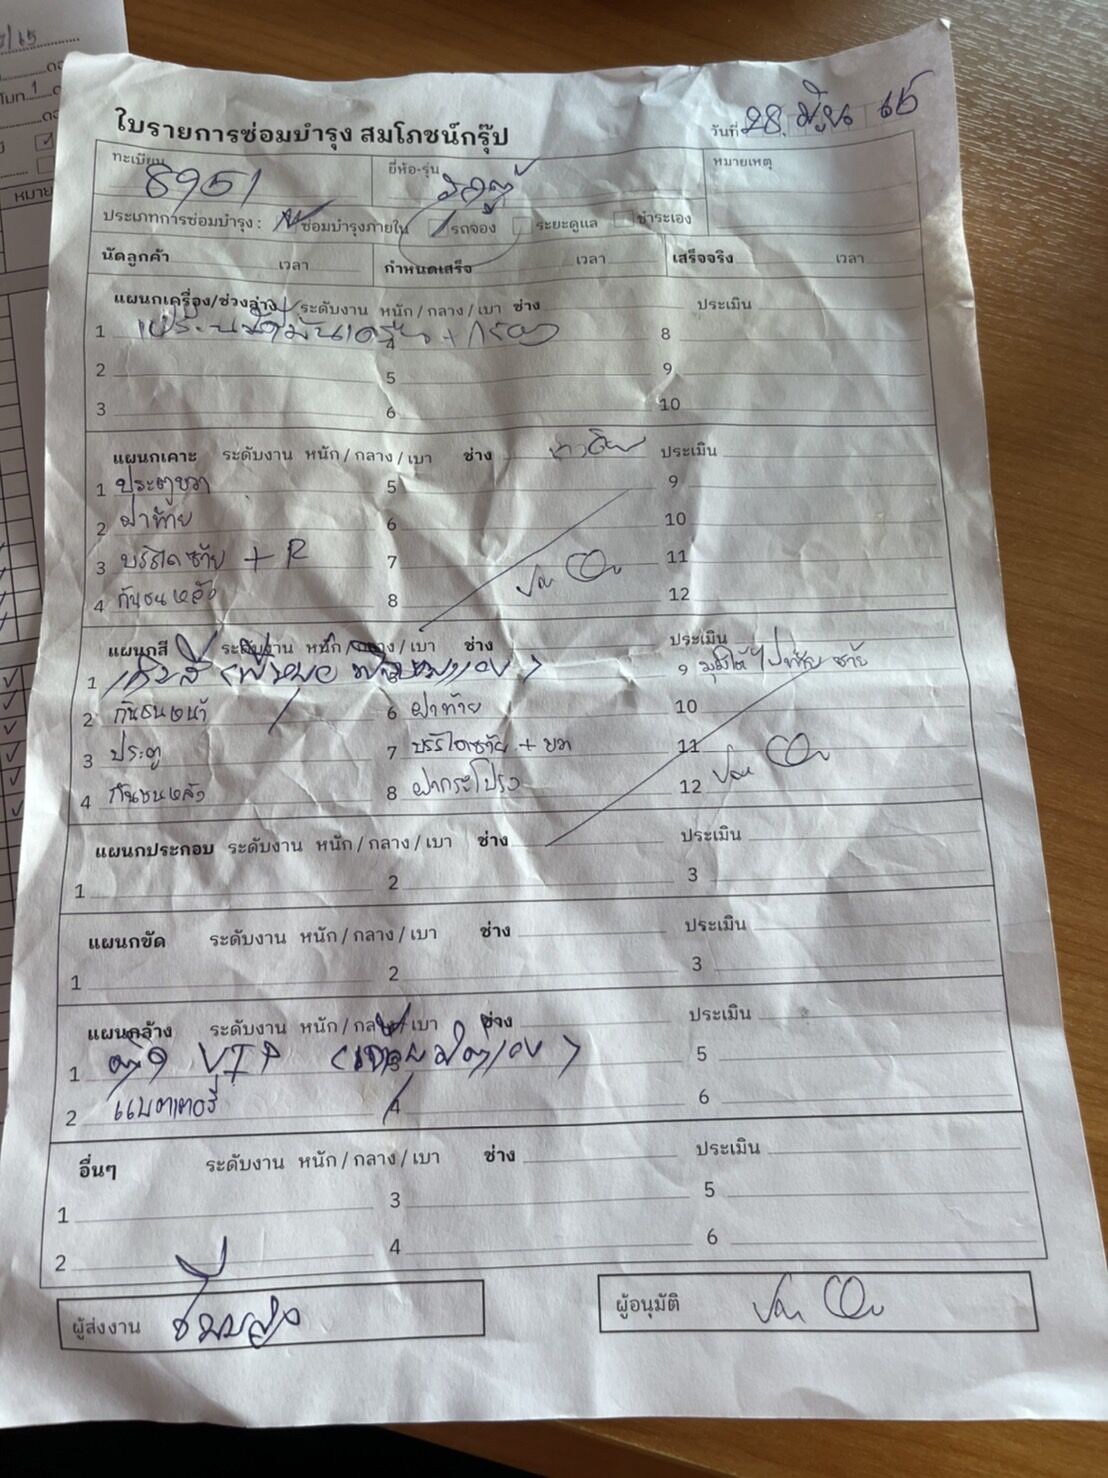 ใบรายการซ่อมบำรุง สมโภชน์กรุ๊ป
วันที่ 28
ทะเบียน 8951 ยี่ห้อ-รุ่น รถตู้ หมายเหตุ
ประเภทการซ่อมบำรุง : ซ่อมบำรุงภายใน รถจอง ระยะดูแล ชำระเอง
นัดลูกค้า เวลา กำหนดเสร็จ เวลา เสร็จจริง เวลา
แผนกเครื่อง/ช่วงล่าง ระดับงาน หนัก / กลาง / เบา ช่าง ประเมิน
1 + กรอง 4 8
2 5 9
3 6 10
แผนกเคาะ ระดับงาน หนัก / กลาง / เบา ช่าง ประเมิน
1 ประตูขวา 5 9
2 ฝาท้าย 6 10
3 บรรไดซ้าย + R 7 11
4 กันชนหลัง 8 12
แผนกสี ระดับงาน หนัก / กลาง / เบา ช่าง ประเมิน
1 9
2 กันชนหน้า 6 ฝาท้าย 10
3 ประตู 7 บรรไดซ้าย + ขวา 11
4 กันชนหลัง 8 ฝากระโปรง 12
แผนกประกอบ ระดับงาน หนัก / กลาง / เบา ช่าง ประเมิน
1 2 3
แผนกขัด ระดับงาน หนัก / กลาง / เบา ช่าง ประเมิน
1 2 3
แผนกล้าง ระดับงาน หนัก / กลาง / เบา ช่าง ประเมิน
1 VIP 5
2 แบตเตอรี่ 4 6
อื่นๆ ระดับงาน หนัก / กลาง / เบา ช่าง ประเมิน
1 3 5
2 4 6
ผู้ส่งงาน ผู้อนุมัติ